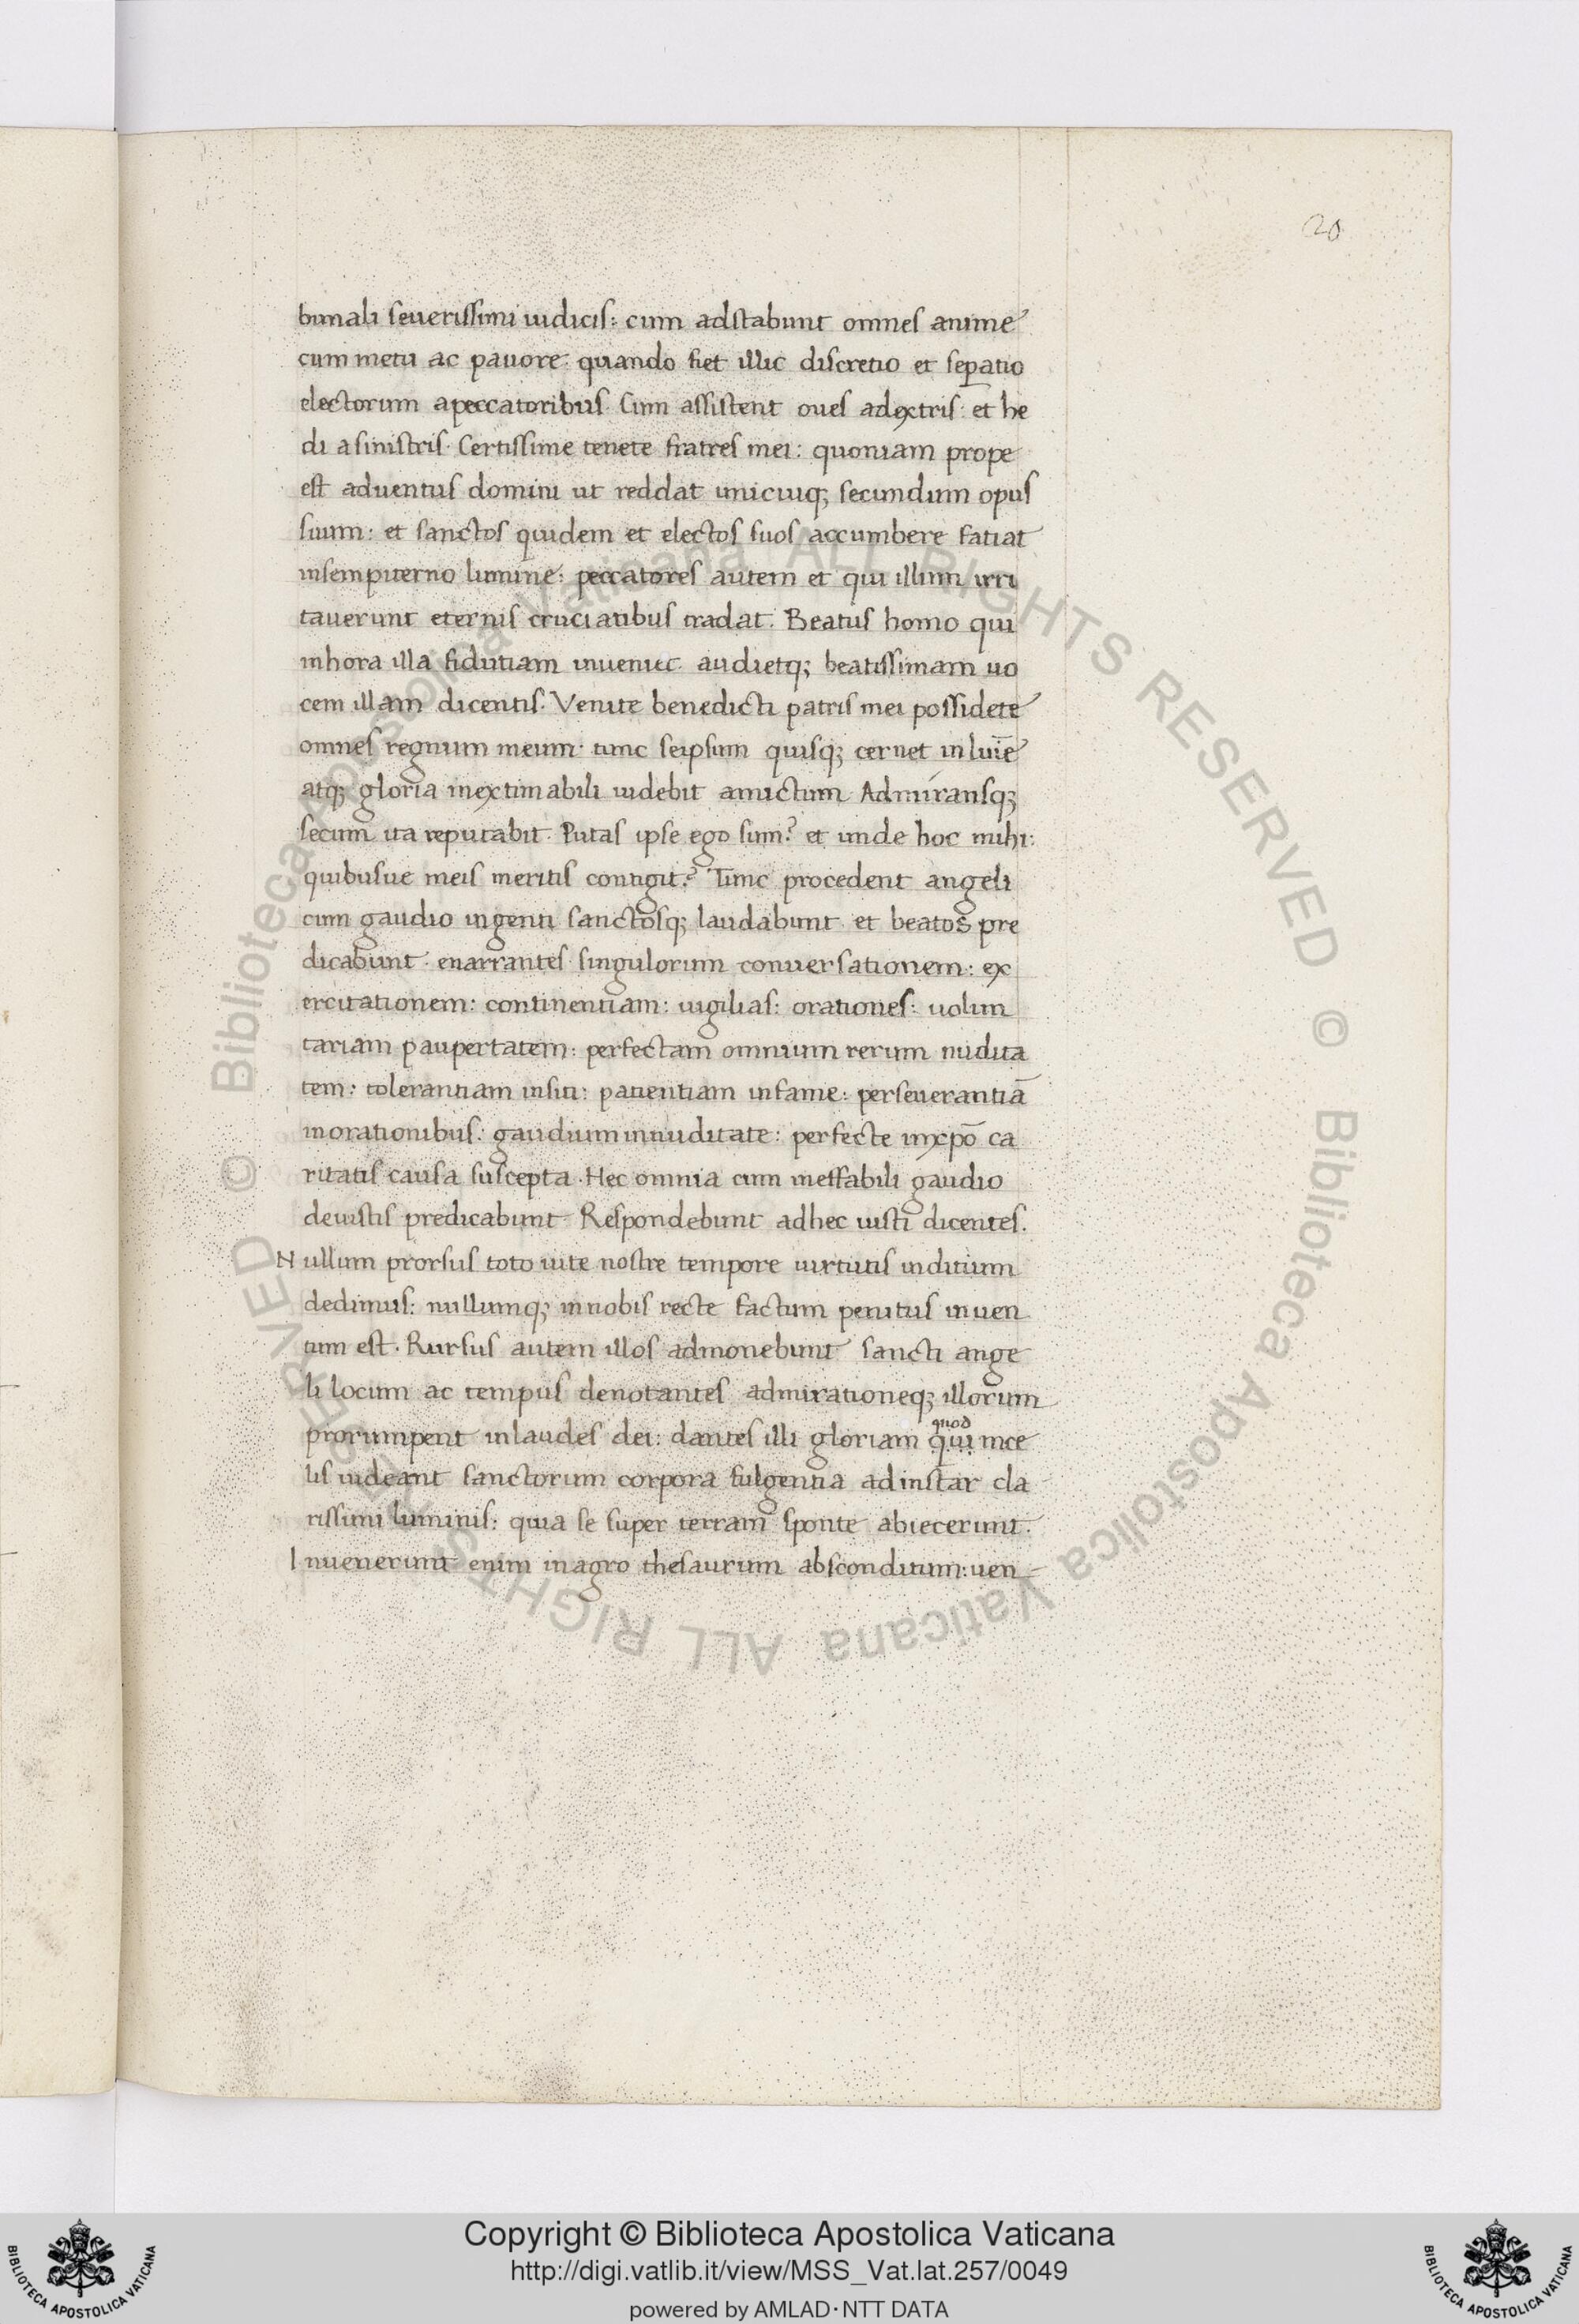 20
bunali seuerissimi iudicis: cum adstabunt omnes anime
cum metu ac pauore· quando fiet illic discretio et sep̲atio
electorum apeccatoribus. Cum assistent oues adextris: et he
di asinistris. Certissime tenete fratres mei: quoniam prope
est aduentus domini ut reddat unicuiq; secundum opus
suum: et sanctos quidem et electos suos accumbere fatiat
insempiterno lumine: peccatores autem et qui illum irri
tauerunt eternis cruciatibus tradat. Beatus homo qui
inhora illa fidutiam inueniet· audietq; beatissimam uo
cem illam dicentis. Venite benedicti patris mei possidete
omnes regnum meum· tunc seipsum quisq; cernet in luīe
atq; gloria inextimabili uidebit amictum Admíransq;
secum ita reputabit. Putas ipse ego sum? et unde hoc mihi:
quibusue meis meritis contigit? Tunc procedent angeli
cum gaudio ingenti sanctosq; laudabunt et beatos pre
dicabunt· enarrantes singulorum conuersationem: ex
ercitationem: continentiam: uigilias: orationes: uolun
tariam paupertatem: perfectam omnium rerum nudita
tem: tolerantiam insiti: patientiam infame: perseuerantiā
inorationibus: gaudium innuditate: perfecte inxp̄o ca
ritatis causa suscepta. Hec omnia cum ineffabili gaudio
deiustis predicabunt· Respondebunt adhec iusti dicentes.
Nullum prorsus toto uite nostre tempore uirtutis inditium
dedimus: nullumq; innobis recte factum penitus inuen
tum est. Rursus autem illos admonebunt sancti ange
li locum ac tempus denotantes admirationeq; illorum
quod
prorumpent inlaudes dei: dantes illi gloriam qui ince
lis uideant sanctorum corpora fulgentia adinstar cla
rissimi luminis: quia se super terram sponte abiecerunt.
Inuenerunt enim inagro thesaurum absconditum: uen
© Biblioteca Apostolica Vaticana ALL RIGHTS RESERVED
© Biblioteca Apostolica Vaticana ALL RIGHTS RESERVED
Copyright © Biblioteca Apostolica Vaticana
http://digi.vatlib.it/view/MSS_Vat.lat.257/0049
powered by AMLAD·NTT DATA
BIBLIOTECA APOSTOLICA VATICANA
BIBLIOTECA APOSTOLICA VATICANA